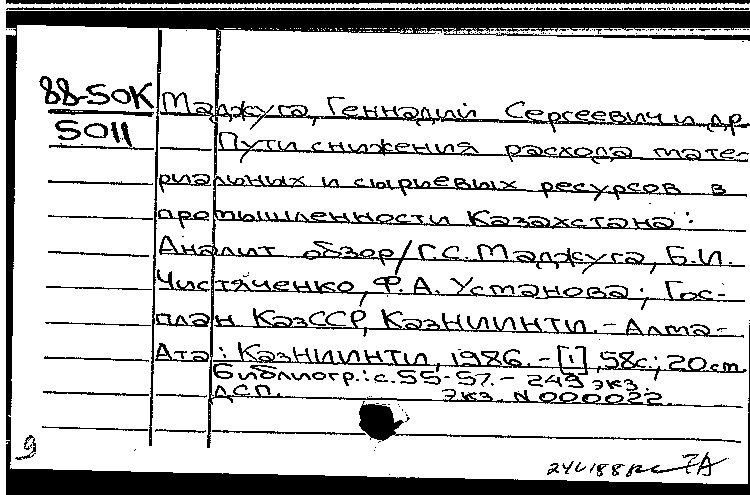 88-50К
5011
Маджуга, Геннадий Сергеевич и др.
Пути снижения расхода мате-
риальных и сырьевых ресурсов в
промышленности Казахстана:
Аналит обзор/Г.С. Маджуга, Б.И.
Чистяченко, Ф.А. Установа; Гос-
план КазССР, КазНИИНТИ.-Алма-
Ата: КазНИИНТИ, 1986.-[1], 58с; 20 cm
Библиогр.: с.55-57.- 249 экз.
ДСП. экз. N 000022.
9
7А